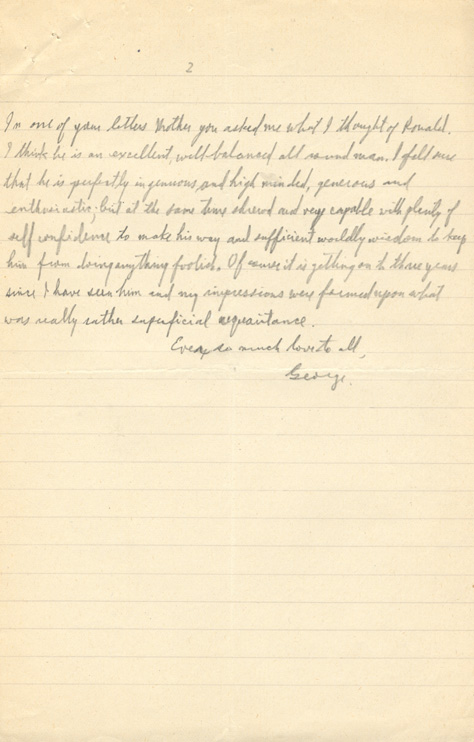 2
In one of your letters Mother you asked me what I thought of Ronald.
I think he is an excellent, well-balanced all round man. I feel sure
that he is perfectly ingenuous, and high minded, generous and
enthusiastic; but at the same time shrewd and very capable with plenty of
self confidence to make his way and sufficient worldly wisdom to keep
him from doing anything foolish. Of course it is getting on to three years
since I have seen him and my impressions were formed upon what
was really rather superficial acquaintance.
Ever so much love to all,
George.